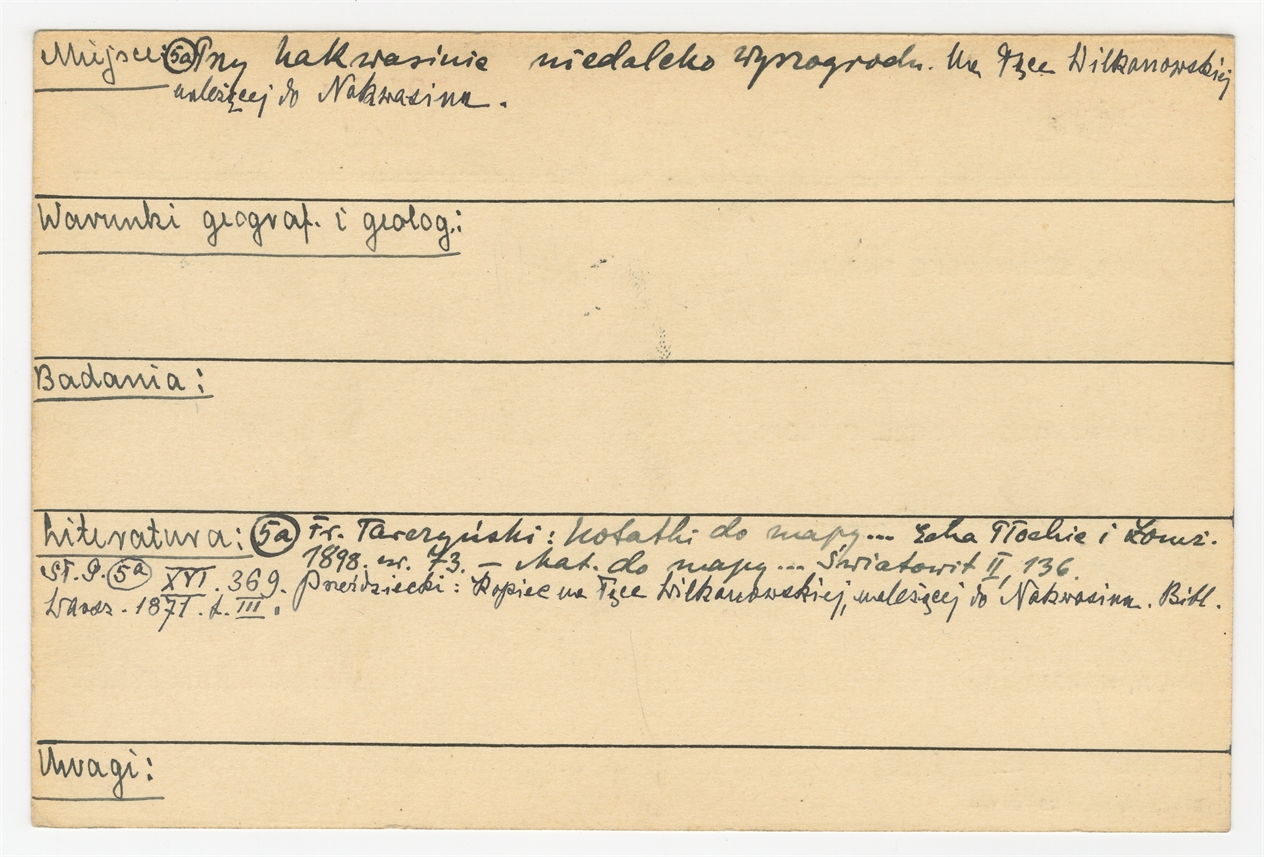 Miejsce: 5a Przy Nakwasinie niedaleko Wyszogrodu. Na Łące Wilkanowskiej
należącej do Nakwasina.
Warunki geograf. i geolog.:
Badania:
Literatura: 5a Fr. Tarczyński: Notatki do mapy... Echa Płockie i Łomż.
1898. nr. 73. – Mat. do mapy... Światowit II, 136.
Sł. G. 5a XVI. 369. Przeździecki: Kopiec na Łące Wilkanowskiej, należącej do Nakwasina. Bibl.
Warsz. 1871. t. III.
Uwagi: